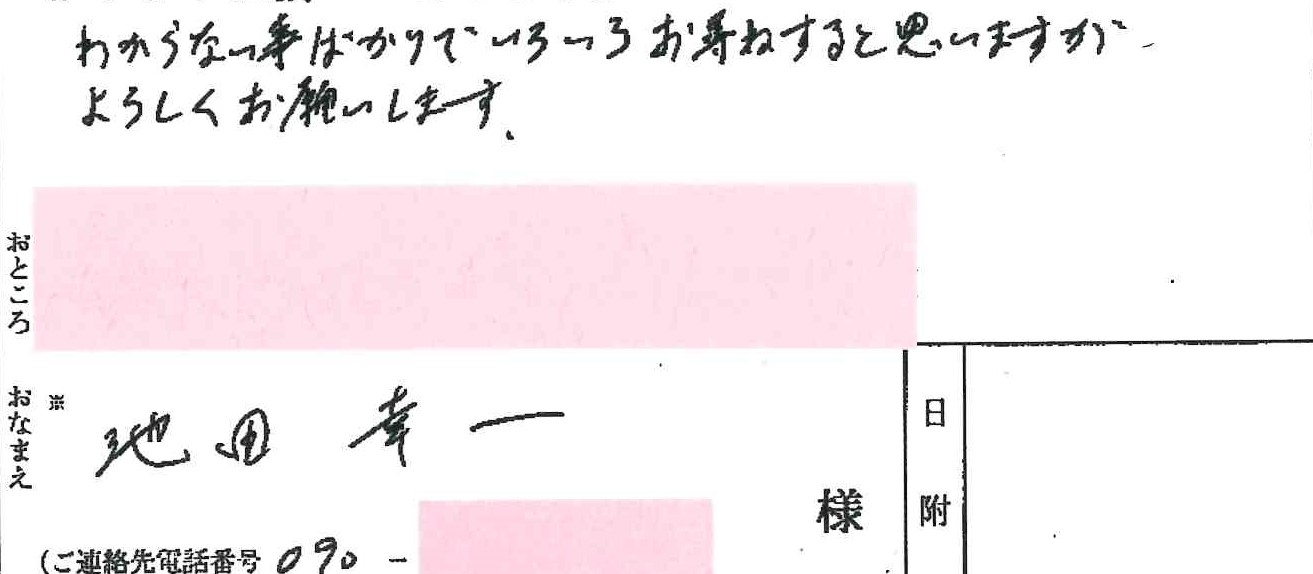 わからない事ばかりでいろいろお尋ねすると思いますが、
ようしくお願いします。
おところ
おなまえ
※
池田 幸一
様
日附
(ご連絡先電話番号 090 -